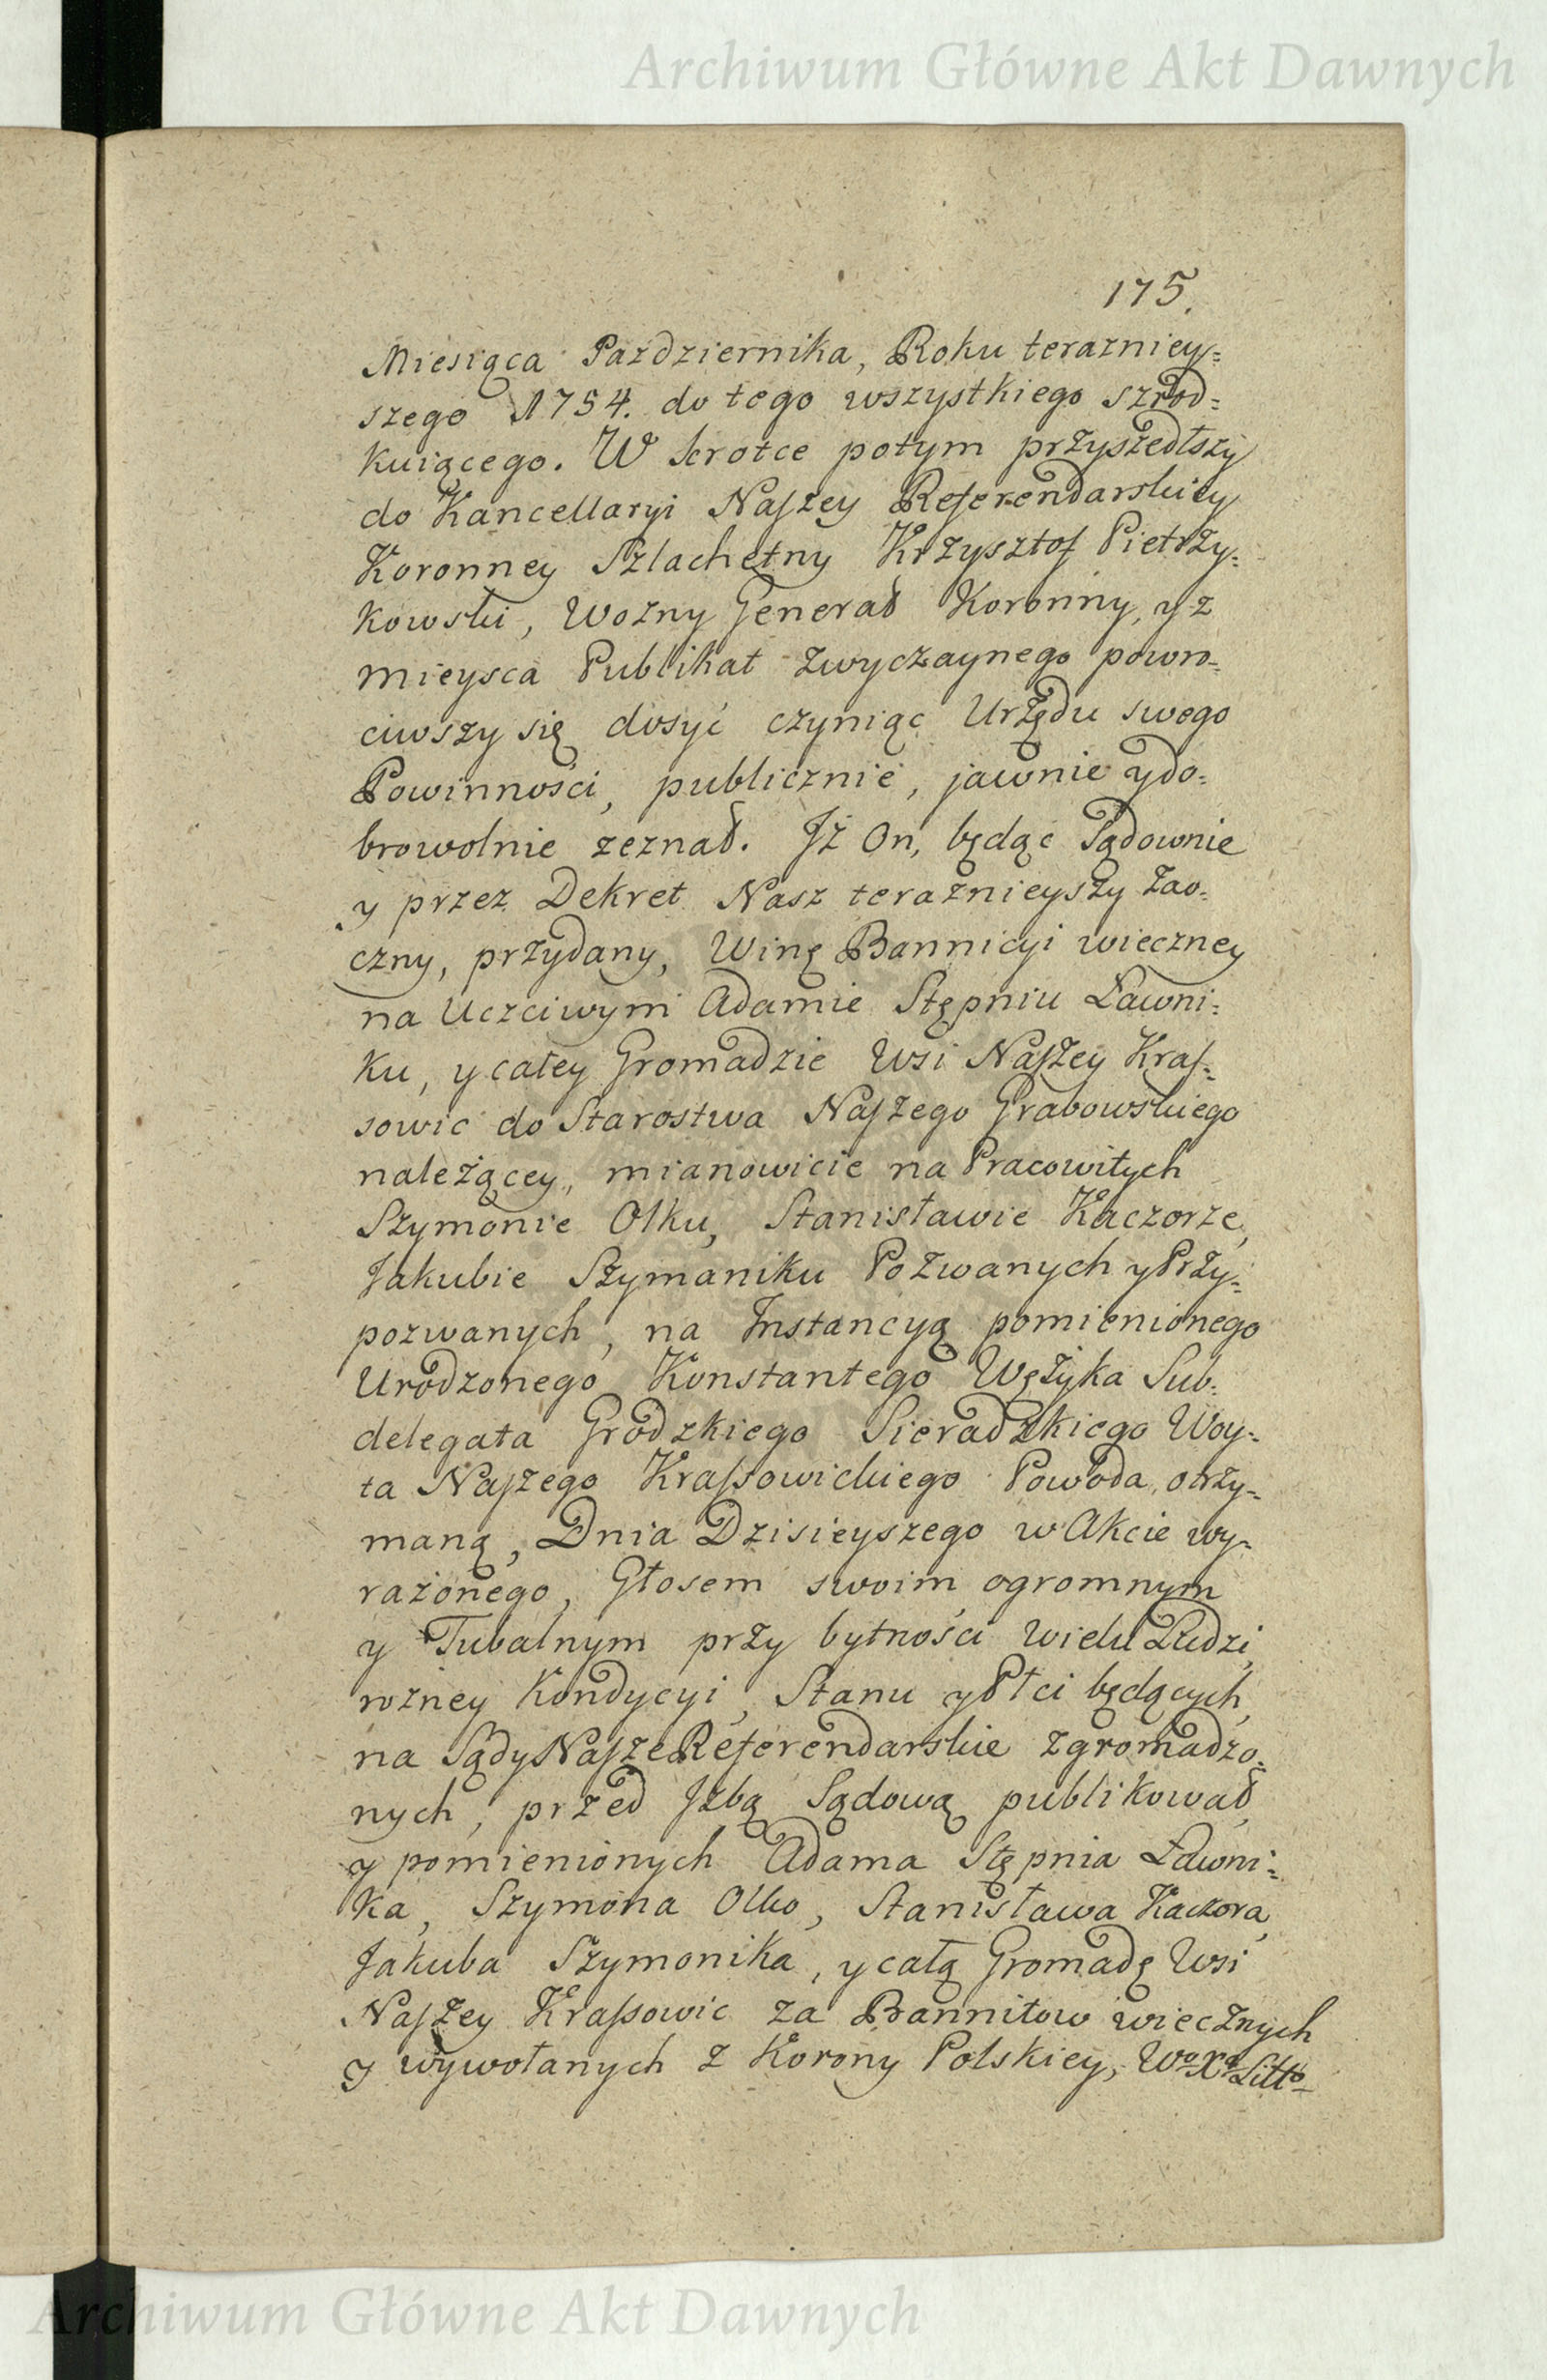 Archiwum Główne Akt Dawnych
175.
Miesiąca Października, Roku terazniey=
szego 1754. do tego wszystkiego szrod=
kuiącego. W krotce potym przyszedłszy
do Kancellaryi Naszey Referendarskiey
Koronney Szlachetny Krzysztof Pietrzy=
kowski, Wozny Generał Koronny, y z
mieysca Publikat zwyczaynego powro=
ciwszy się dosyć czyniąc Urzędu swego
Powinności, publicznie, jawnie y do=
browolnie zeznał. Iż On, będąc Sądownie
y przez Dekret Nasz teraźnieyszy zao=
czny, przydany, Winę Bannicyi wieczney
na Uczciwym Adamie Stępniu Ławni=
ku, y całey Gromadzie Wsi Naszey Kras=
sowic do Starostwa Naszego Grabowskiego
należącey, mianowicie na Pracowitych
Szymonie Olku, Stanisławie Kaczorze,
Jakubie Szymaniku Pozwanych y Przy=
pozwanych, na Instancyą pomienionego
Urodzonego Konstantego Wężyka Sub=
delegata Grodzkiego Sieradzkiego Woy=
ta Naszego Krassowickiego Powoda, otrzy=
maną, Dnia Dzisieyszego w Akcie wy=
rażonego, Głosem swoim ogromnym
y Tubalnym przy bytności wielu Ludzi,
rożney Kondycyi, Stanu y Płci będących,
na Sądy Nasze Referendarskie zgromadzo=
nych, przed Izbą Sądową publikował
y pomienionych Adama Stępnia Ławni=
ka, Szymona Olko, Stanisława Kaczora,
Jakuba Szymonika, y całą Gromadę Wsi
Naszey Krassowic za Bannitow wiecznych
y wywołanych z Korony Polskiey, Wo Xa Litto
Archiwum Główne Akt Dawnych